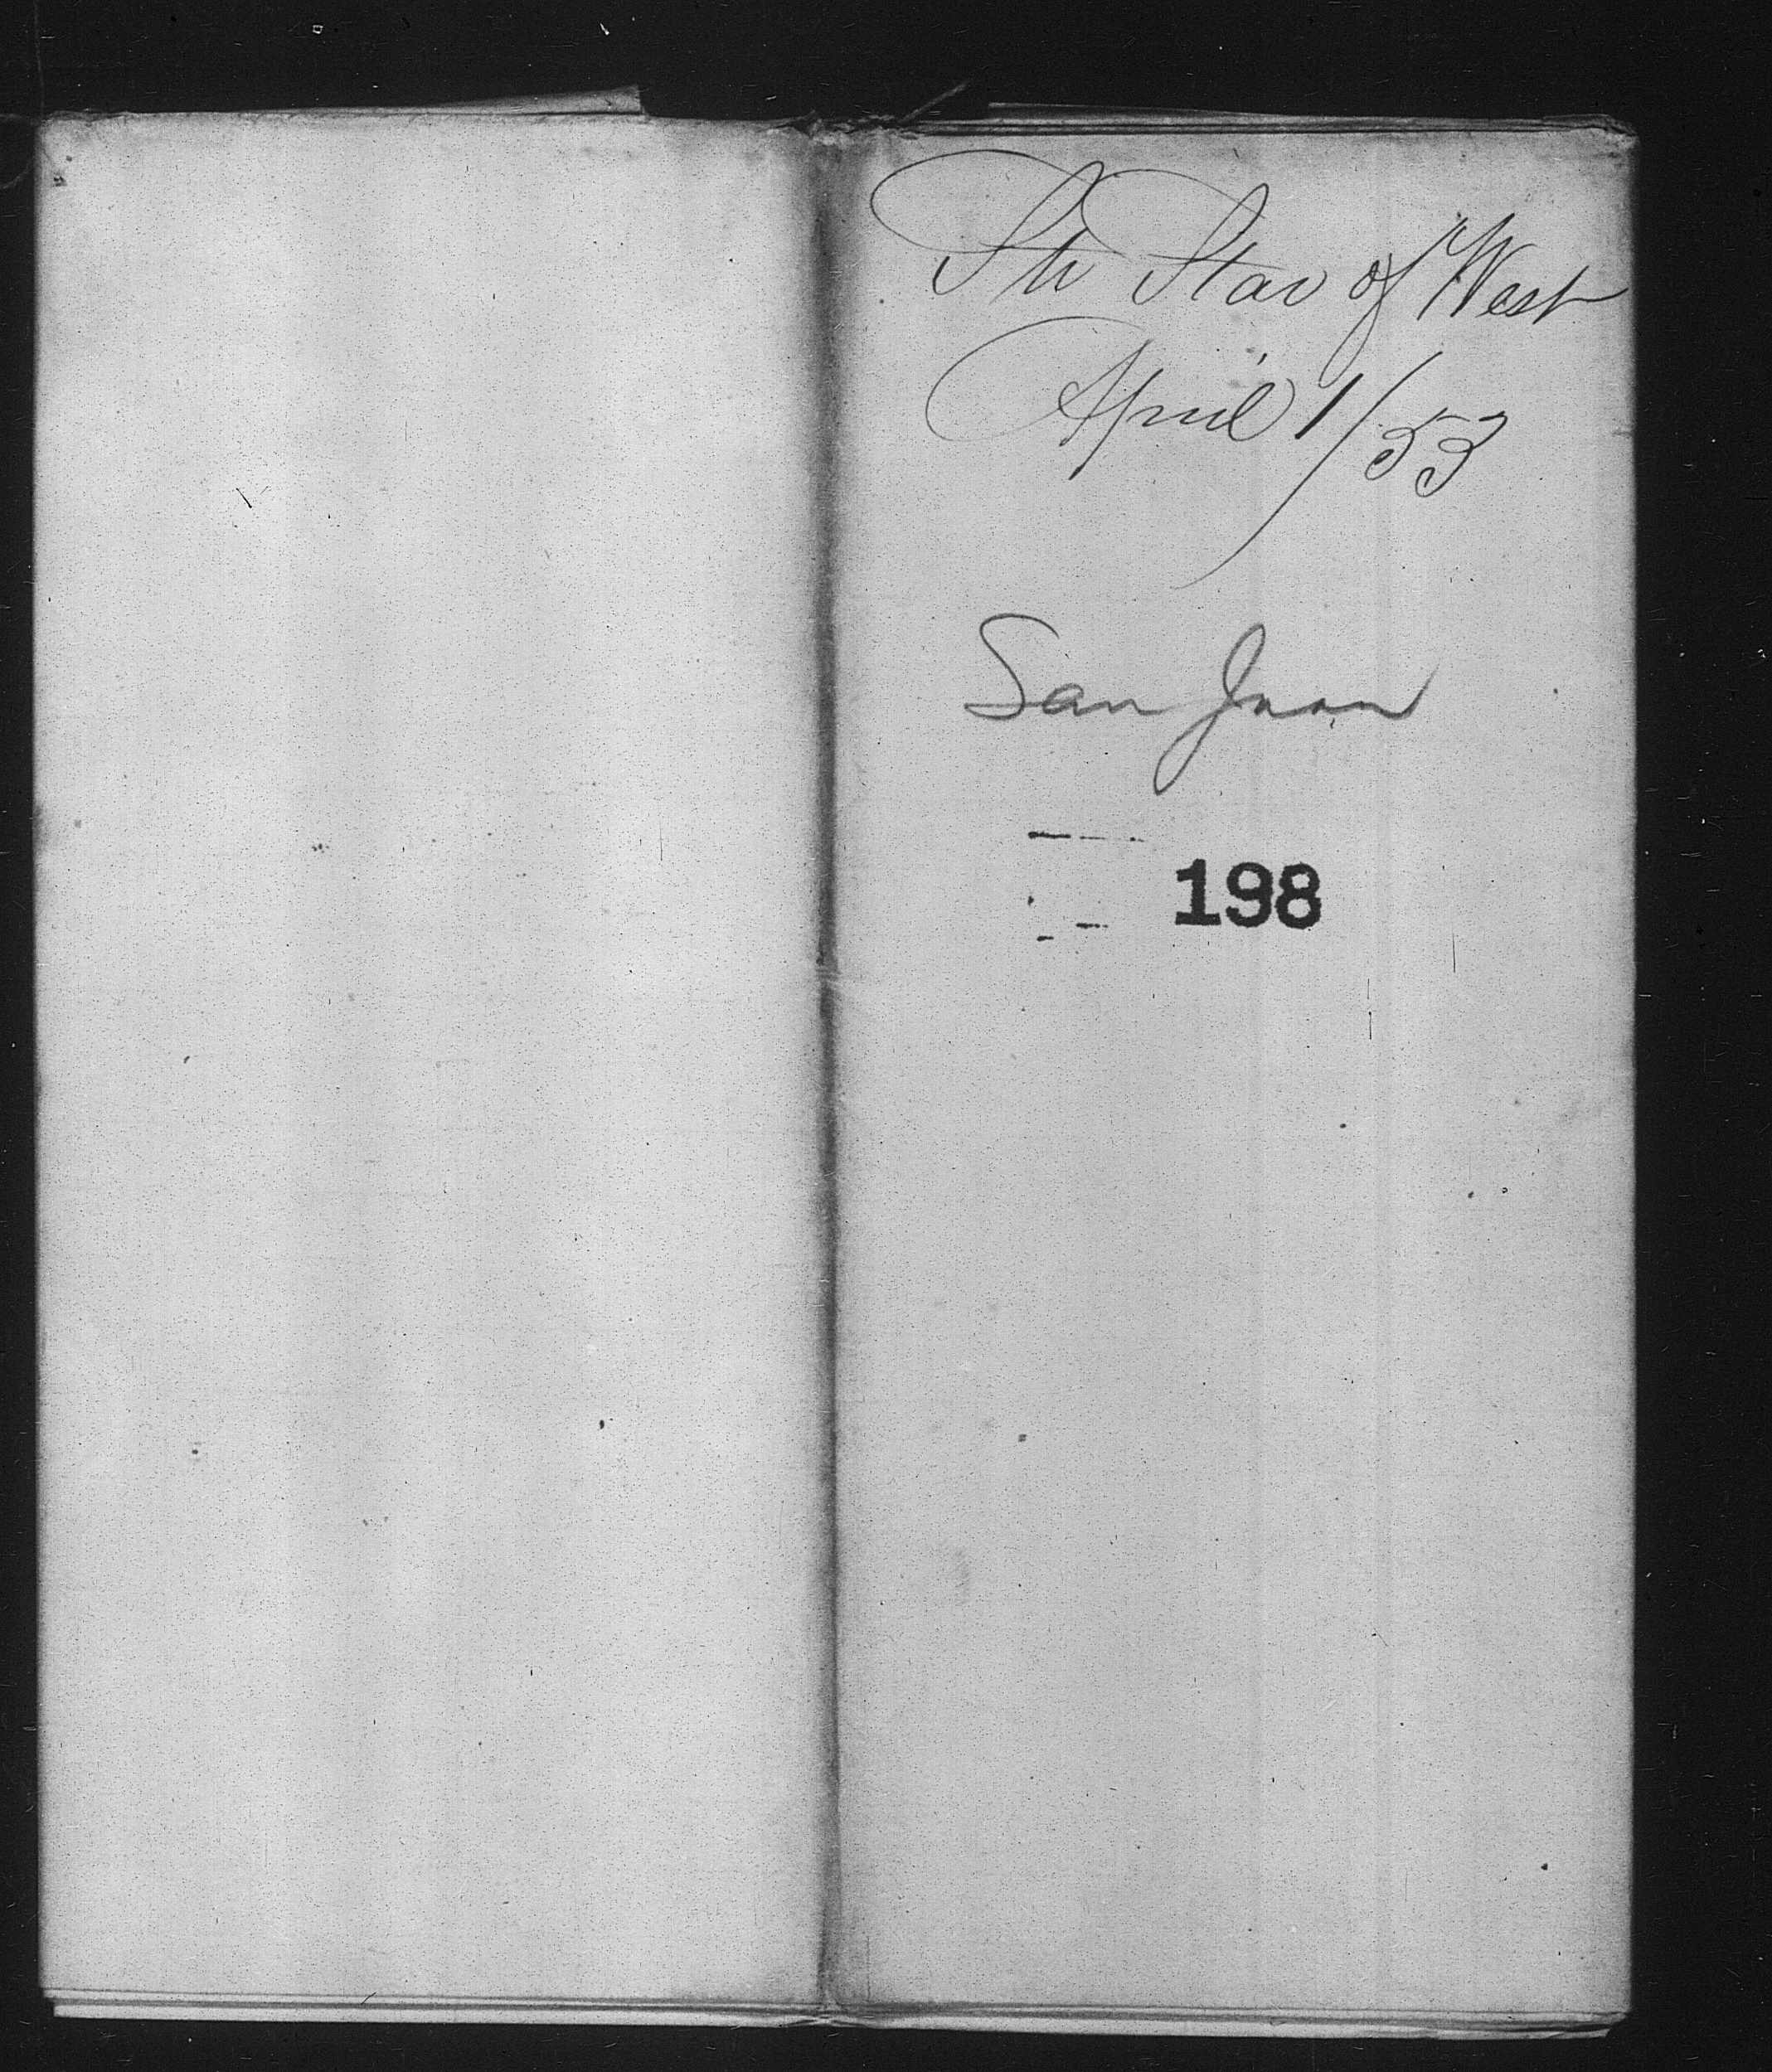 Str Star of West
April 1/53
San Juan
198